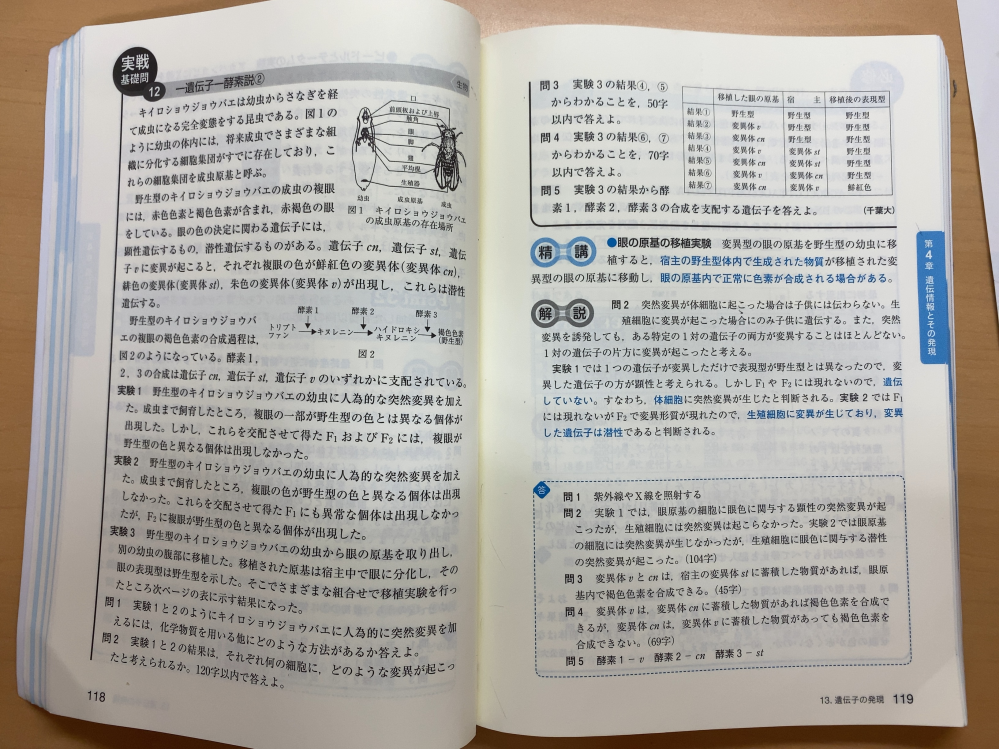 実戦
基礎問
12
一遺伝子一酵素説②
キイロショウジョウバエは幼虫からさなぎを経
て成虫になる完全変態をする昆虫である。図1の
ように幼虫の体内には，将来成虫でさまざまな組
織に分化する細胞集団がすでに存在しており，こ
れらの細胞集団を成虫原基と呼ぶ。
野生型のキイロショウジョウバエの成虫の複眼
には，赤色色素と褐色色素が含まれ，赤褐色の眼
をしている。眼の色の決定に関わる遺伝子には，
顕性遺伝するもの，潜性遺伝するものがある。遺伝子cn，遺伝子st，遺伝
子vに変異が起こると，それぞれ複眼の色が鮮紅色の変異体(変異体cn)，
緋色の変異体(変異体st)，朱色の変異体(変異体v)が出現し，これらは潜性
遺伝する。
口
前頭楯および上唇
触角
眼
脚
翅
平均棍
生殖器
幼虫 成虫原基 成虫
図1 キイロショウジョウバエ
の成虫原基の存在場所
野生型のキイロショウジョウバ
エの複眼の褐色色素の合成過程は，
図2のようになっている。酵素1，
2，3の合成は遺伝子cn，遺伝子st，遺伝子vのいずれかに支配されている。
酵素1 酵素2 酵素3
トリプト
ファン
キヌレニン
ハイドロキシ
キヌレニン
褐色色素
(野生型)
図2
実験1 野生型のキイロショウジョウバエの幼虫に人為的な突然変異を加え
た。成虫まで飼育したところ，複眼の一部が野生型の色とは異なる個体が
出現した。しかし，これらを交配させて得たF1およびF2には，複眼が
野生型の色と異なる個体は出現しなかった。
実験2 野生型のキイロショウジョウバエの幼虫に人為的な突然変異を加え
た。成虫まで飼育したところ，複眼の色が野生型の色と異なる個体は出現
しなかった。これらを交配させて得たF1にも異常な個体は出現しなかっ
たが，F2に複眼が野生型の色と異なる個体が出現した。
実験3 野生型のキイロショウジョウバエの幼虫から眼の原基を取り出し，
別の幼虫の腹部に移植した。移植された原基は宿主中で眼に分化し，その
眼の表現型は野生型を示した。そこでさまざまな組合せで移植実験を行っ
たところ次ページの表に示す結果になった。
問1 実験1と2のようにキイロショウジョウバエに人為的に突然変異を加
えるには，化学物質を用いる他にどのような方法があるか答えよ。
問2 実験1と2の結果は，それぞれ何の細胞に，どのような変異が起こっ
たと考えられるか。120字以内で答えよ。
118
問3 実験3の結果④，⑤
からわかることを，50字
以内で答えよ。
問4 実験3の結果⑥，⑦
からわかることを，70字
以内で答えよ。
問5 実験3の結果から酵
素1，酵素2，酵素3の合成を支配する遺伝子を答えよ。 (千葉大)
移植した眼の原基 宿 主 移植後の表現型
結果① 野生型 野生型 野生型
結果② 変異体v 野生型 野生型
結果③ 変異体cn 野生型 野生型
結果④ 変異体v 変異体st 野生型
結果⑤ 変異体cn 変異体st 野生型
結果⑥ 変異体v 変異体cn 野生型
結果⑦ 変異体cn 変異体v 鮮紅色
精講
●眼の原基の移植実験 変異型の眼の原基を野生型の幼虫に移
植すると，宿主の野生型体内で生成された物質が移植された変
異型の眼の原基に移動し，眼の原基内で正常に色素が合成される場合がある。
解説
問2 突然変異が体細胞に起こった場合は子供には伝わらない。生
殖細胞に変異が起こった場合にのみ子供に遺伝する。また，突然
変異を誘発しても，ある特定の1対の遺伝子の両方が変異することはほとんどない。
1対の遺伝子の片方に変異が起こったと考える。
実験1では1つの遺伝子が変異しただけで表現型が野生型とは異なったので，変
異した遺伝子の方が顕性と考えられる。しかしF1やF2には現れないので，遺伝
していない。すなわち，体細胞に突然変異が生じたと判断される。実験2ではF1
には現れないがF2で変異形質が現れたので，生殖細胞に変異が生じており，変異
した遺伝子は潜性であると判断される。
答
問1 紫外線やX線を照射する
問2 実験1では，眼原基の細胞に眼色に関する顕性の突然変異が起
こったが，生殖細胞には突然変異は起こらなかった。実験2では眼原基
の細胞には突然変異が生じなかったが，生殖細胞に眼色に関与する潜性
の突然変異が起こった。(104字)
問3 変異体vとcnは，宿主の変異体stに蓄積した物質があれば，眼原
基内で褐色色素を合成できる。(45字)
問4 変異体vは，変異体cnに蓄積した物質があれば褐色色素を合成で
きるが，変異体cnは，変異体vに蓄積した物質があっても褐色色素を
合成できない。(69字)
問5 酵素1－v 酵素2－cn 酵素3－st
第4章 遺伝情報とその発現
13. 遺伝子の発現 119